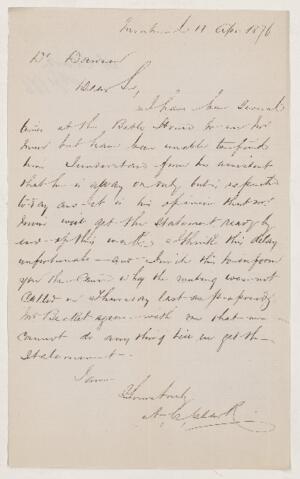 11 Apr 1876
Dr
Dear Sir,
I have been several
times at the Bath House to see Mr
but have been unable to find
him I understand from his assistant
that he is away on duty but is expected
to day and it is his opinion that Mr
will get the Statement ready by
end of this week I think this delay
unfortunate and wish this to inform
you the cause why the meeting was not
called on Thursday last as proposed
Mr Becket agrees with me that we
cannot do any thing till we get the
Statement
I am
Yours truly
A. C. Clark